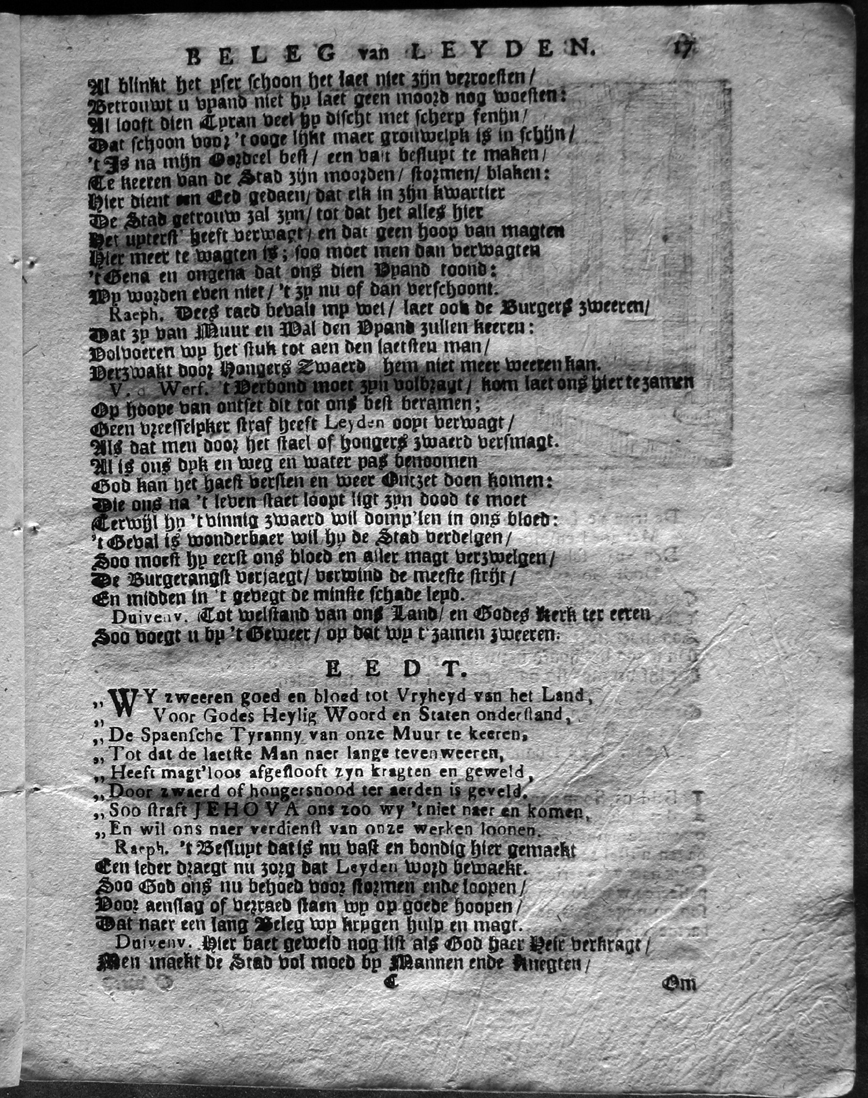 BELEG van LEYDEN. 17
Al blinkt het yser schoon het laet niet zijn verroesten/
Betrouwt u vyand niet hy laet geen moord nog woesten:
Al looft dien Tyran veel hy discht met scherp fenijn/
Dat schoon voor 't ooge lijkt maer grouwelyk is in schijn/
't Is na mijn Oordeel best/ een vast besluyt te maken/
Te keeren van de Stad zijn moorden/ stormen/ blaken:
Hier dient een Eed gedaen/ dat elk in zijn kwartier
De Stad getrouw zal zyn/ tot dat het alles hier
Het uyterst' heeft verwagt/ en dat geen hoop van magten
Hier meer te wagten is; soo moet men dan verwagten
't Gena en ongena dat ons dien Vyand toond:
Wy worden even niet/ 't zy nu of dan verschoont.
Raeph. Dees raed bevalt my wel/ laet ook de Burgers zweeren/
Dat zy van Muur en Wal den Vyand zullen keeren:
Volvoeren wy het stuk tot aen den laetsten man/
Verzwakt door Hongers Zwaerd hem niet meer weeren kan.
V. d Werf. 't Verbond moet zyn volbragt/ kom laet ons hier te zamen
Op hoope van ontset dit tot ons best beramen;
Geen vreesselyker straf heeft Leyden oopt verwagt/
Als dat men door het stael of hongers zwaerd versmagt.
Al is ons dyk en weg en water pas benoomen
God kan het haest versien en weer Ontzet doen komen:
Die ons na 't leven staet loopt ligt zyn dood te moet
Terwijl hy 't vinnig zwaerd wil domp'len in ons bloed:
't Geval is wonderbaer wil hy de Stad verdelgen/
Soo moest hy eerst ons bloed en aller magt verzwelgen/
De Burgerangst verjaegt/ verwind de meeste strijt/
En midden in 't gevegt de minste schade leyd.
Duivenv. Tot welstand van ons Land/ en Godes Kerk ter eeren
Soo voegt u by 't Geweer/ op dat wy t'zamen zweeren.
EEDT.
„WY zweeren goed en bloed tot Vryheyd van het Land,
„ Voor Godes Heylig Woord en Staten onderstand,
„De Spaensche Tyranny van onze Muur te keeren,
„Tot dat de laetste Man naer lange tevenweeren,
„Heeft magt'loos afgeslooft zyn kragten en geweld,
„Door zwaerd of hongersnood ter aerden is geveld.
„Soo straft JEHOVA ons zoo wy 't niet naer en komen,
„En wil ons naer verdienst van onze werken loonen.
Raeph. 't Besluyt dat is nu vast en bondig hier gemaekt
Een ieder draegt nu zorg dat Leyden word bewaekt.
Soo God ons nu behoed voor stormen ende loopen/
Door aenslag of verraed staen wy op goede hoopen/
Dat naer een lang Beleg wy krygen hulp en magt.
Duivenv. Hier baet geweld nog list als God haer Heir verkragt/
Men maekt de Stad vol moed by Mannen ende Knegten/
C Om